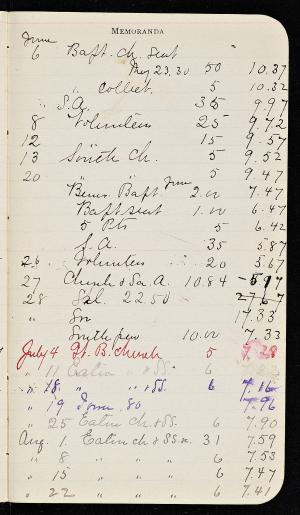 MEMORANDA
June
6 Bapt. Ch. seat "
May 23.30 50 10.37
" Collect. 5 10.32
" S.A. 35 9.97
8 Volunteers 25 9.72
12 15 9.57
13 South Ch. 5 9.52
20 5 9.47
Benev. Bapt June 2.00 7.47
Bapt seat 1.00 6.47
5 Pts 5 6.42
S. A. 35 5.87
26. Volunteers 20 5.67
27 Church & S.A. 10.84 -5.17
28 Sal. 22.50 27.67
" 17.33
South pew 10.00 7.33
July 4 Ft. B. Church 5 7.28
" 11 Eaton " & SS. 6
" 18 " " & SS. 6 7.16
" 19 .80 7.96
" 25 Eaton ch. & SS. 6 7.90
Aug. 1. Eaton ch. & SS. 31 7.59
" 8 " " " 6 7.53
" 15 " " " 6 7.47
" 22 " " " 6 7.41